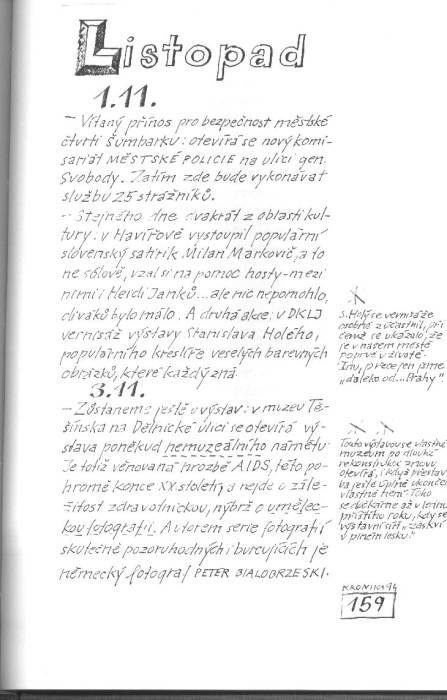 Listopad
1.11.
– Vítaný přínos pro bezpečnost městské
čtvrti Šumbarku: otevírá se nový komi-
sariát MĚSTSKÉ POLICIE na ulici gen.
Svobody. Zatím zde bude vykonávat
službu 25 strážníků.
– Stejného dne dvakrát z oblasti kul-
tury: v Havířově vystoupil populární
slovenský satirik Milan Markovič, a to
ne sólově, vzal si na pomoc hosty - mezi
nimi i Heidi Janků... ale nic nepomohlo,
diváků bylo málo. A druhá akce: v DKLJ
vernisáž výstavy Stanislava Holého,
populárního kreslíře veselých barevných
obrázků, které každý zná.
3.11.
– Zůstaneme ještě u výstav: v muzeu Tě-
šínska na Dělnické ulici se otevírá vý-
stava poněkud nemuzeálního námětu.
Je totiž věnovaná hrozbě AIDS, této po-
hromě konce XX století, a nejde o zále-
žitost zdravotnickou, nýbrž o umělec-
kou fotografii. Autorem serie fotografií
skutečně pozoruhodných i burcujících je
německý fotograf PETER BIALOBRZESKI.
S. Holý se vernisáže
osobně zúčastnil, při
čemž se ukázalo, že
je v našem městě
poprvé v životě.
Inu, přece jen jsme
„daleko od... Prahy"
Touto výstavou se vlastně
muzeum po dlouhé
rekonstrukci znovu
otevírá, i když přestav
ba ještě úplně ukončena
vlastně není. Toho
se dočkáme až v lednu
příštího roku, kdy se
výstavní síň „zaskví
v plném lesku."
KRONIKA 94
159